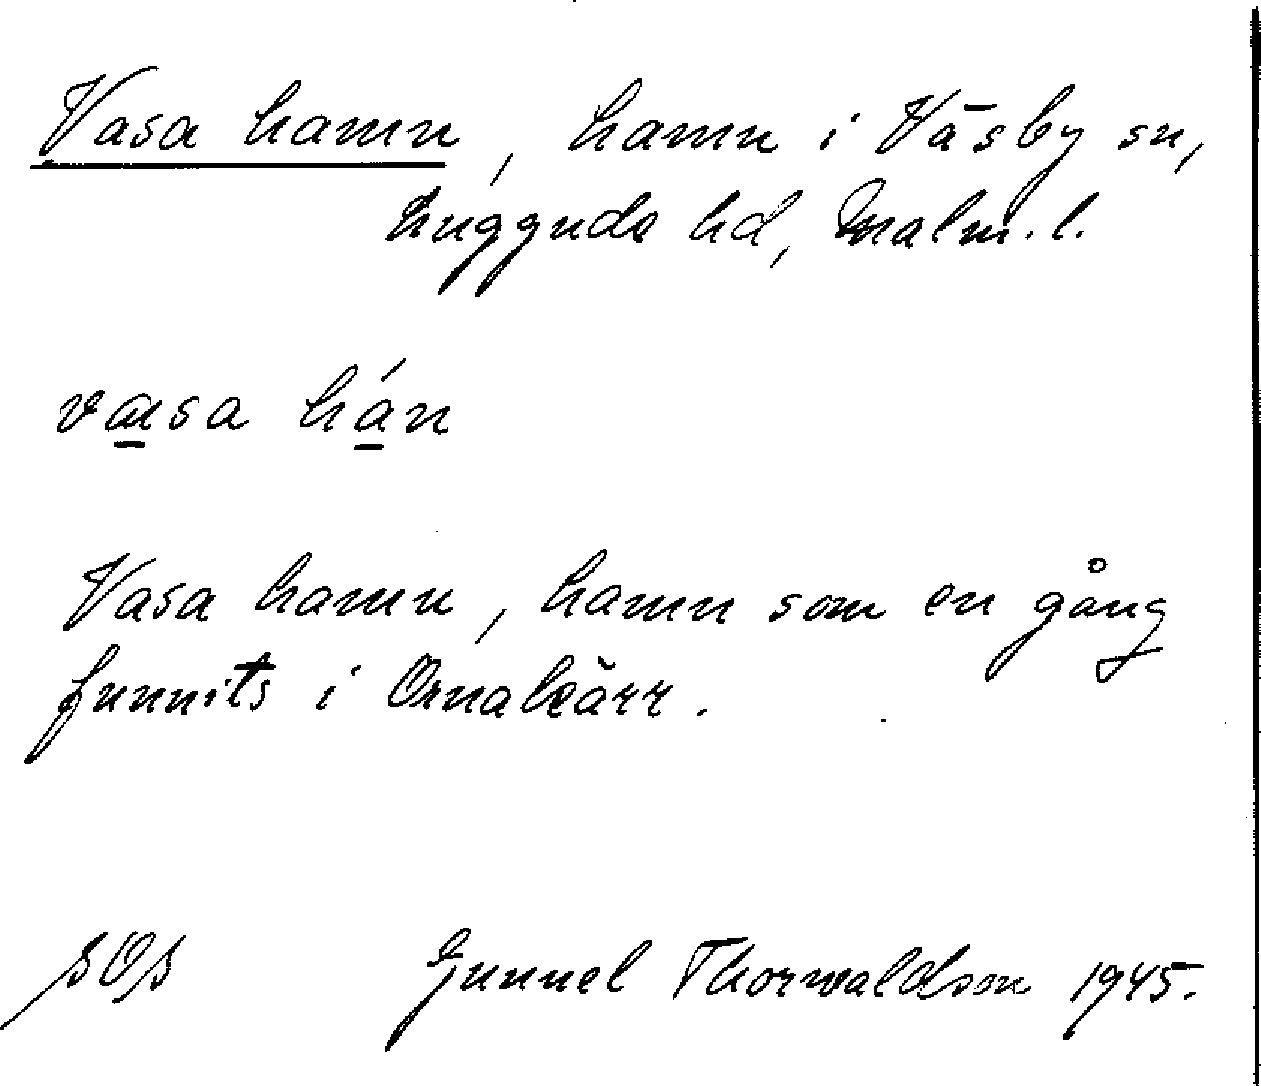 Vasa hamn, hamn i Väsby sn,
Luggude hd, Malm. l.
væsa hán
Vasa hamn, hamn som en gång
funnits i Ornakärr.
SOS Gunnel Thorwaldson 1945.